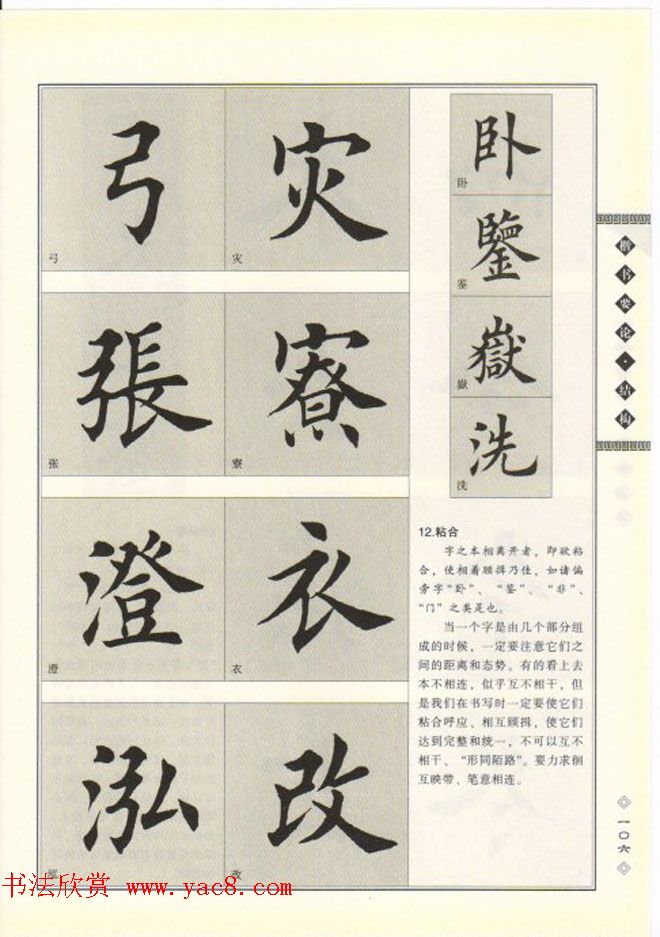 弓
弓
災
灾
張
张
寮
寮
澄
澄
衣
衣
泓
改
改
卧
卧
鑒
鉴
嶽
嶽
洗
洗
12.粘合
字之本相离开者，即欲粘
合，使相着顾揖乃佳，如诸偏
旁字“卧”、“鉴”、“非”、
“门”之类是也。
当一个字是由几个部分组
成的时候，一定要注意它们之
间的距离和态势。有的看上去
本不相连，似乎互不相干，但
是我们在书写时一定要使它们
粘合呼应、相互顾揖，使它们
达到完整和统一，不可以互不
相干、“形同陌路”。要力求徊
互映带、笔意相连。
楷书要论·结构
一〇六
书法欣赏 www.yac8.com